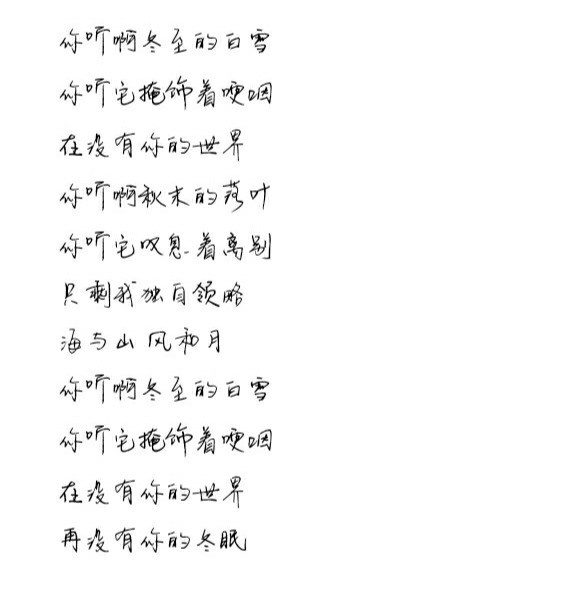 你听啊冬至的白雪
你听它掩饰着哽咽
在没有你的世界
你听啊秋末的落叶
你听它叹息着离别
只剩我独自领略
海与山风和月
你听啊冬至的白雪
你听它掩饰着哽咽
在没有你的世界
再没有你的冬眠